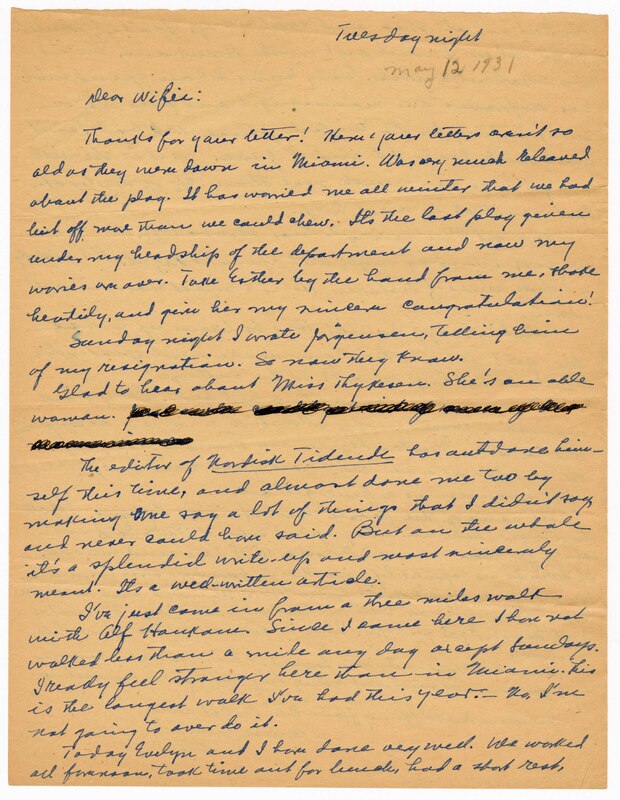 Tuesday night
May 12 1931
Dear Wifie:
Thanks for your letter! Here your letters aren't so
old as they were down in Miami. Was very much releaved
about the play. It has worried me all winter that we had
bit off more than we could chew. It's the last play given
under my headship of the department and now my
worries are over. Take Esther by the hand from me, shake
heartily, and give her my sincere congratulation!
Sunday night I wrote Jörgensen, telling him
of my resignation. So now they know.
Glad to hear about Miss Thykesen. She's an able
woman.
The editor of Nordisk Tidende has outdone him-
self this time, and almost done me too by
making me say a lot of things that I didn't say
and never could have said. But on the whole
it's a splendid write-up and most sincerely
meant. It's a well-written article.
I've just come in from a three miles walk
with Alf Houkom. Since I came here I have not
walked less than a mile any day except Sundays.
I really feel stronger here than in Miami. This
is the longest walk I've had this year. — No, I'm
not going to over do it.
Today Evelyn and I have done very well. We worked
all forenoon, took time out for lunch, had a short rest,